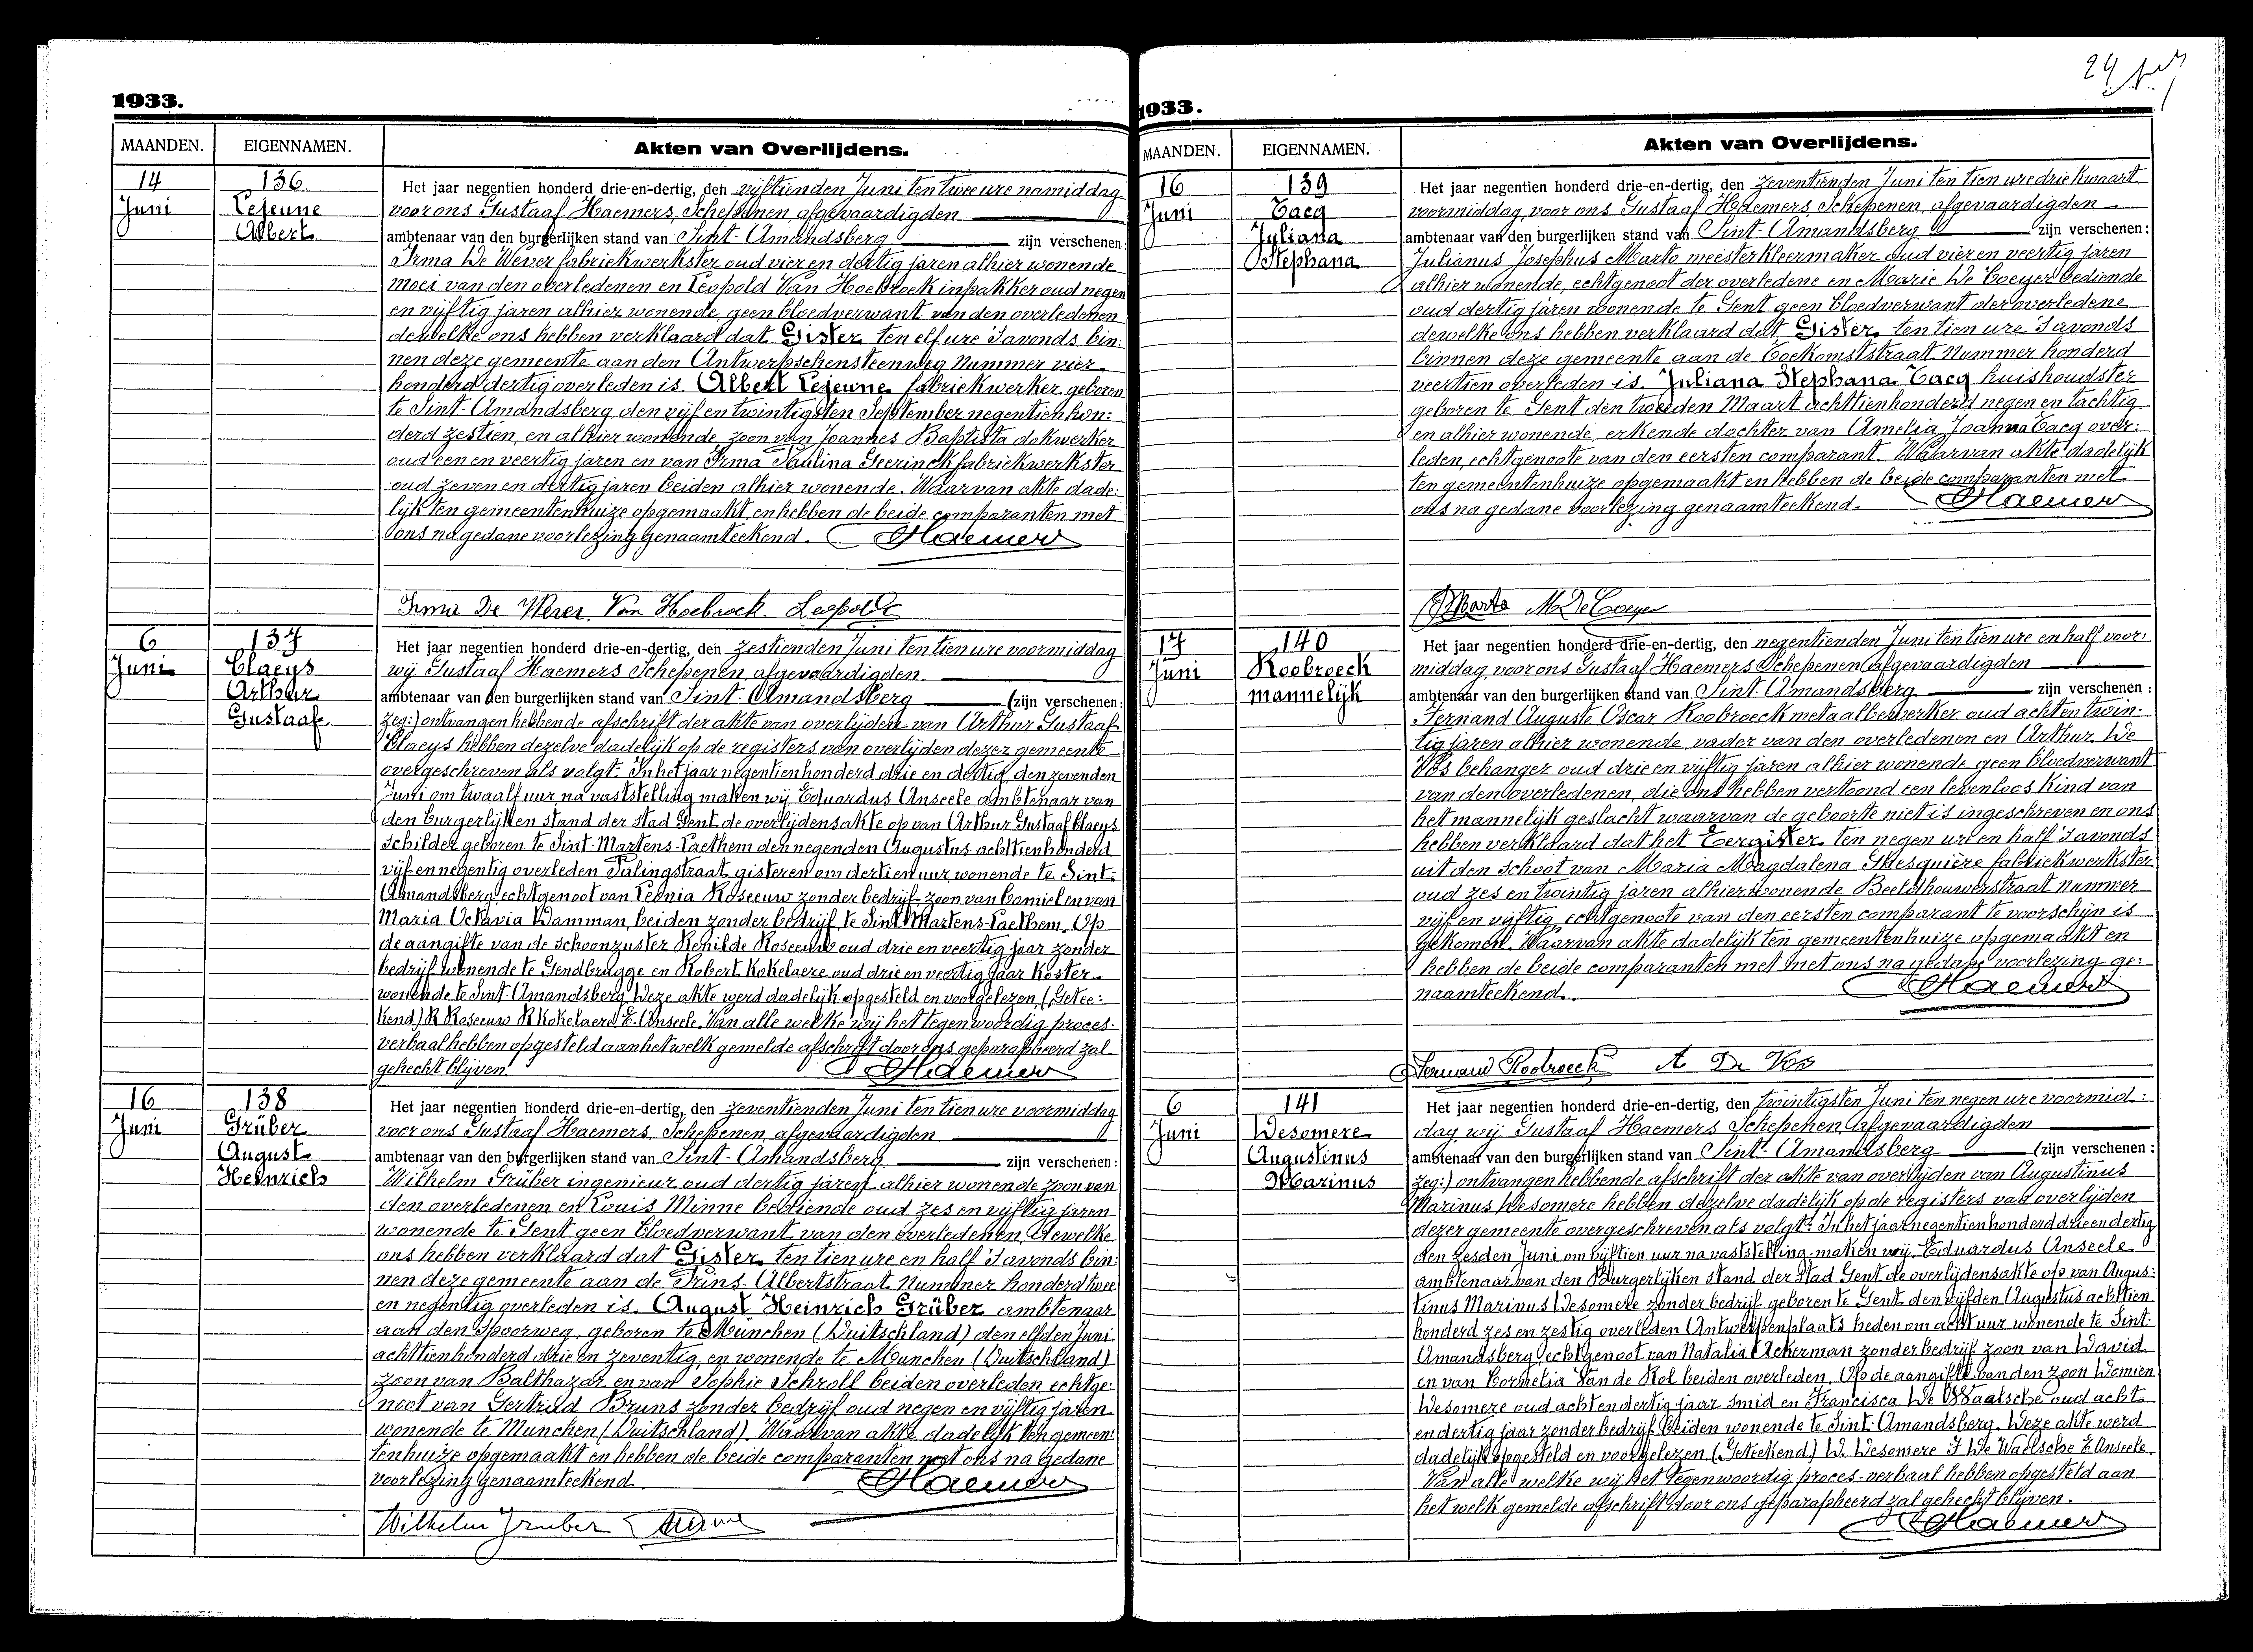 1933.
MAANDEN. EIGENNAMEN. Akten van Overlijdens.
14 Juni
136
Lejeune
Albert
Het jaar negentien honderd drie-en-dertig, den vijftienden Juni ten twee ure namiddag
voor ons Gustaaf Haemers, Schepenen, afgevaardigden
ambtenaar van den burgerlijken stand van Sint-Amandsberg zijn verschenen:
Irma De Wever fabriekwerkster oud vier en dertig jaren alhier wonende
moei van den overledenen en Leopold Van Hoebroeck inpakker oud negen
en vijftig jaren alhier wonende, geen bloedverwant van den overledenen
dewelke ons hebben verklaard dat Gister ten elf ure 's avonds bin:
nen deze gemeente aan den Antwerpschensteenweg Nummer vier
honderd dertig overleden is. Albert Lejeune, fabriekwerker geboren
te Sint-Amandsberg den vijf en twintigsten September negentien hon:
derd zestien, en alhier wonende, zoon van Joannes Baptista dokwerker
oud een en veertig jaren en van Irma Paulina Geerinck fabriekwerkster
oud zeven en dertig jaren beiden alhier wonende. Waarvan akte dade:
lijk ten gemeentenhuize opgemaakt, en hebben de beide comparanten met
ons na gedane voorlezing genaamteekend. Haemers
Irma De Wever Van Hoebroeck Leopold
6 Juni
137
Claeys
Arthur
Gustaaf
Het jaar negentien honderd drie-en-dertig, den zestienden Juni ten tien ure voormiddag
wij Gustaaf Haemers Schepenen afgevaardigden
ambtenaar van den burgerlijken stand van Sint-Amandsberg (zijn verschenen:
zeg:) ontvangen hebbende afschrift der akte van overlijden van Arthur Gustaaf
Claeys hebben dezelve dadelijk op de registers van overlijden dezer gemeente
overgeschreven als volgt: In het jaar negentienhonderd drie en dertig, den zevenden
Juni om twaalf uur na vaststelling maken wij Eduardus Anseele ambtenaar van
den burgerlijken stand der stad Gent de overlijdensakte op van Arthur Gustaaf Claeys
schilder geboren te Sint-Martens-Laethem den negenden Augustus achttienhonderd
vijf en negentig overleden Palingstraat gisteren om dertien uur, wonende te Sint-
Amandsberg, echtgenoot van Leonia Roseeuw zonder bedrijf zoon van Camiel en van
Maria Octavia Damman, beiden zonder bedrijf, te Sint-Martens-Laethem. Op
de aangifte van de schoonzuster Renilde Roseeuw oud drie en veertig jaar zonder
bedrijf wonende te Gendbrugge en Robert Kokelaere oud drie en veertig jaar Koster
wonende te Sint-Amandsberg. Deze akte werd dadelijk opgesteld en voorgelezen. (Getee:
kend) R Roseeuw R Kokelaere E. Anseele. Van alle welke wij het tegenwoordig proces-
verbaal hebben opgesteld aan het welk gemelde afschrift door ons geparapheerd zal
gehecht blijven. Haemers
16 Juni
138
Grüber
August
Heinrich
Het jaar negentien honderd drie-en-dertig, den zeventienden Juni ten tien ure voormiddag
voor ons Gustaaf Haemers, Schepenen, afgevaardigden
ambtenaar van den burgerlijken stand van Sint-Amandsberg zijn verschenen:
Wilhelm Grüber ingenieur oud dertig jaren alhier wonende zoon van
den overledenen en Louis Minne bediende oud zes en vijftig jaren
wonende te Gent geen bloedverwant van den overledenen, dewelke
ons hebben verklaard dat Gister ten tien ure en half 's avonds bin:
nen deze gemeente aan de Prins-Albertstraat Nummer honderd twee
en negentig overleden is. August Heinrich Grüber ambtenaar
aan den spoorweg, geboren te München (Duitschland) den elfden Juni
achttienhonderd drie en zeventig, en wonende te Munchen (Duitschland)
zoon van Balthazar en van Sophie Schroll beiden overleden echtge:
noot van Gertrud Bruns zonder bedrijf oud negen en vijftig jaren
wonende te Munchen (Duitschland). Waarvan akte dadelijk ten gemeen:
tenhuize opgemaakt en hebben de beide comparanten met ons na gedane
voorlezing genaamteekend. Haemers
Wilhelm Gruber Minne
1933.
MAANDEN. EIGENNAMEN. Akten van Overlijdens.
16 Juni
139
Tacq
Juliana
Stephana
Het jaar negentien honderd drie-en-dertig, den zeventienden Juni ten tien ure drie kwaart
voormiddag voor ons Gustaaf Haemers, Schepenen, afgevaardigden
ambtenaar van den burgerlijken stand van Sint-Amandsberg zijn verschenen:
Julianus Josephus Marto meesterkleermaker oud vier en veertig jaren
alhier wonende, echtgenoot der overledene en Marie De Coeyer bediende
oud dertig jaren wonende te Gent geen bloedverwant der overledene
dewelke ons hebben verklaard dat Gister ten tien ure 's avonds
binnen deze gemeente aan de Toekomststraat Nummer honderd
veertien overleden is. Juliana Stephana Tacq huishoudster
geboren te Gent den tweeden Maart achttienhonderd negen en tachtig
en alhier wonende, erkende dochter van Amelia Joanna Tacq over:
leden, echtgenoote van den eersten comparant. Waarvan akte dadelijk
ten gemeentenhuize opgemaakt en hebben de beide comparanten met
ons na gedane voorlezing genaamteekend. Haemers
Marto M De Coeyer
17 Juni
140
Roobroeck
mannelijk
Het jaar negentien honderd drie-en-dertig, den negentienden Juni ten tien ure en half voor:
middag voor ons Gustaaf Haemers Schepenen afgevaardigden
ambtenaar van den burgerlijken stand van Sint-Amandsberg zijn verschenen:
Fernand Auguste Oscar Roobroeck metaalbewerker oud acht en twin:
tig jaren alhier wonende, vader van den overledenen en Arthur De
Vos behanger oud drie en vijftig jaren alhier wonende geen bloedverwant
van den overledenen, die ons hebben vertoond een levenloos kind van
het mannelijk geslacht waarvan de geboorte niet is ingeschreven en ons
hebben verklaard dat het Eergister ten negen ure en half 's avonds
uit den schoot van Maria Magdalena Ghesquière fabriekwerkster
oud zes en twintig jaren alhier wonende Beeldhouwerstraat nummer
vijf en vijftig, echtgenoote van den eersten comparant te voorschijn is
gekomen. Waarvan akte dadelijk ten gemeentenhuize opgemaakt en
hebben de beide comparanten met met ons na gedane voorlezing ge:
naamteekend. Haemers
Fernand Roobroeck A De Vos
6 Juni
141
Desomere
Augustinus
Marinus
Het jaar negentien honderd drie-en-dertig, den twintigsten Juni ten negen ure voormid:
dag wij Gustaaf Haemers Schepenen afgevaardigden
ambtenaar van den burgerlijken stand van Sint-Amandsberg (zijn verschenen:
zeg:) ontvangen hebbende afschrift der akte van overlijden van Augustinus
Marinus Desomere hebben dezelve dadelijk op de registers van overlijden
dezer gemeente overgeschreven als volgt: In het jaar negentienhonderd drie en dertig
den zesden Juni om vijftien uur na vaststelling maken wij Eduardus Anseele
ambtenaar van den Burgerlijken stand der stad Gent de overlijdensakte op van Augus:
tinus Marinus Desomere zonder bedrijf geboren te Gent den vijfden Augustus achttien
honderd zes en zestig overleden Antwerpenplaats heden om acht uur wonende te Sint-
Amandsberg, echtgenoot van Natalia Ackerman zonder bedrijf zoon van David
en van Cornelia Van de Rot beiden overleden. Op de aangifte van den zoon Damien
Desomere oud acht en dertig jaar smid en Francisca De Waelsche oud acht
en dertig jaar zonder bedrijf beiden wonende te Sint-Amandsberg. Deze akte werd
dadelijk opgesteld en voorgelezen (Geteekend) D. Desomere F De Waelsche E Anseele
Van alle welke wij het tegenwoordig proces-verbaal hebben opgesteld aan
het welk gemelde afschrift door ons geparapheerd zal gehecht blijven.
Haemers